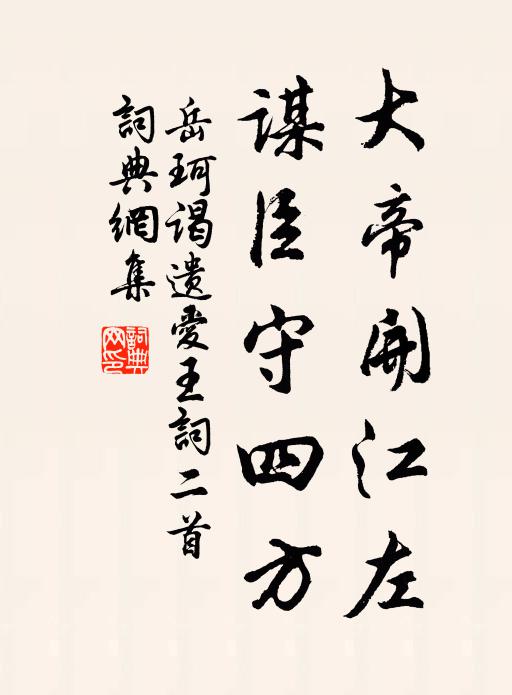 大帝開江左
謀臣守四方
岳珂謁遺愛王詞二首
詞典網集
詞典網印